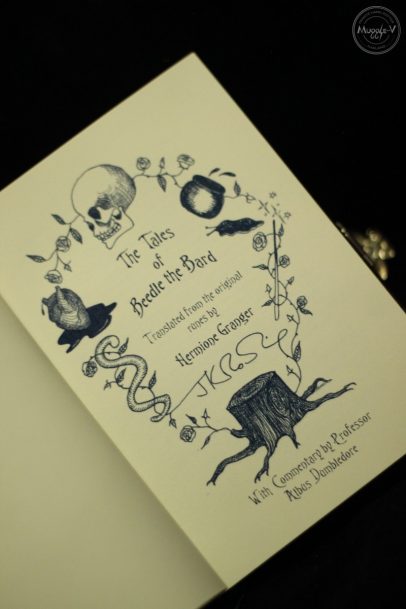 Muggle-V
The Tales
of
Beedle the Bard
Translated from the original
runes by
Hermione Granger
With Commentary by Professor
Albus Dumbledore